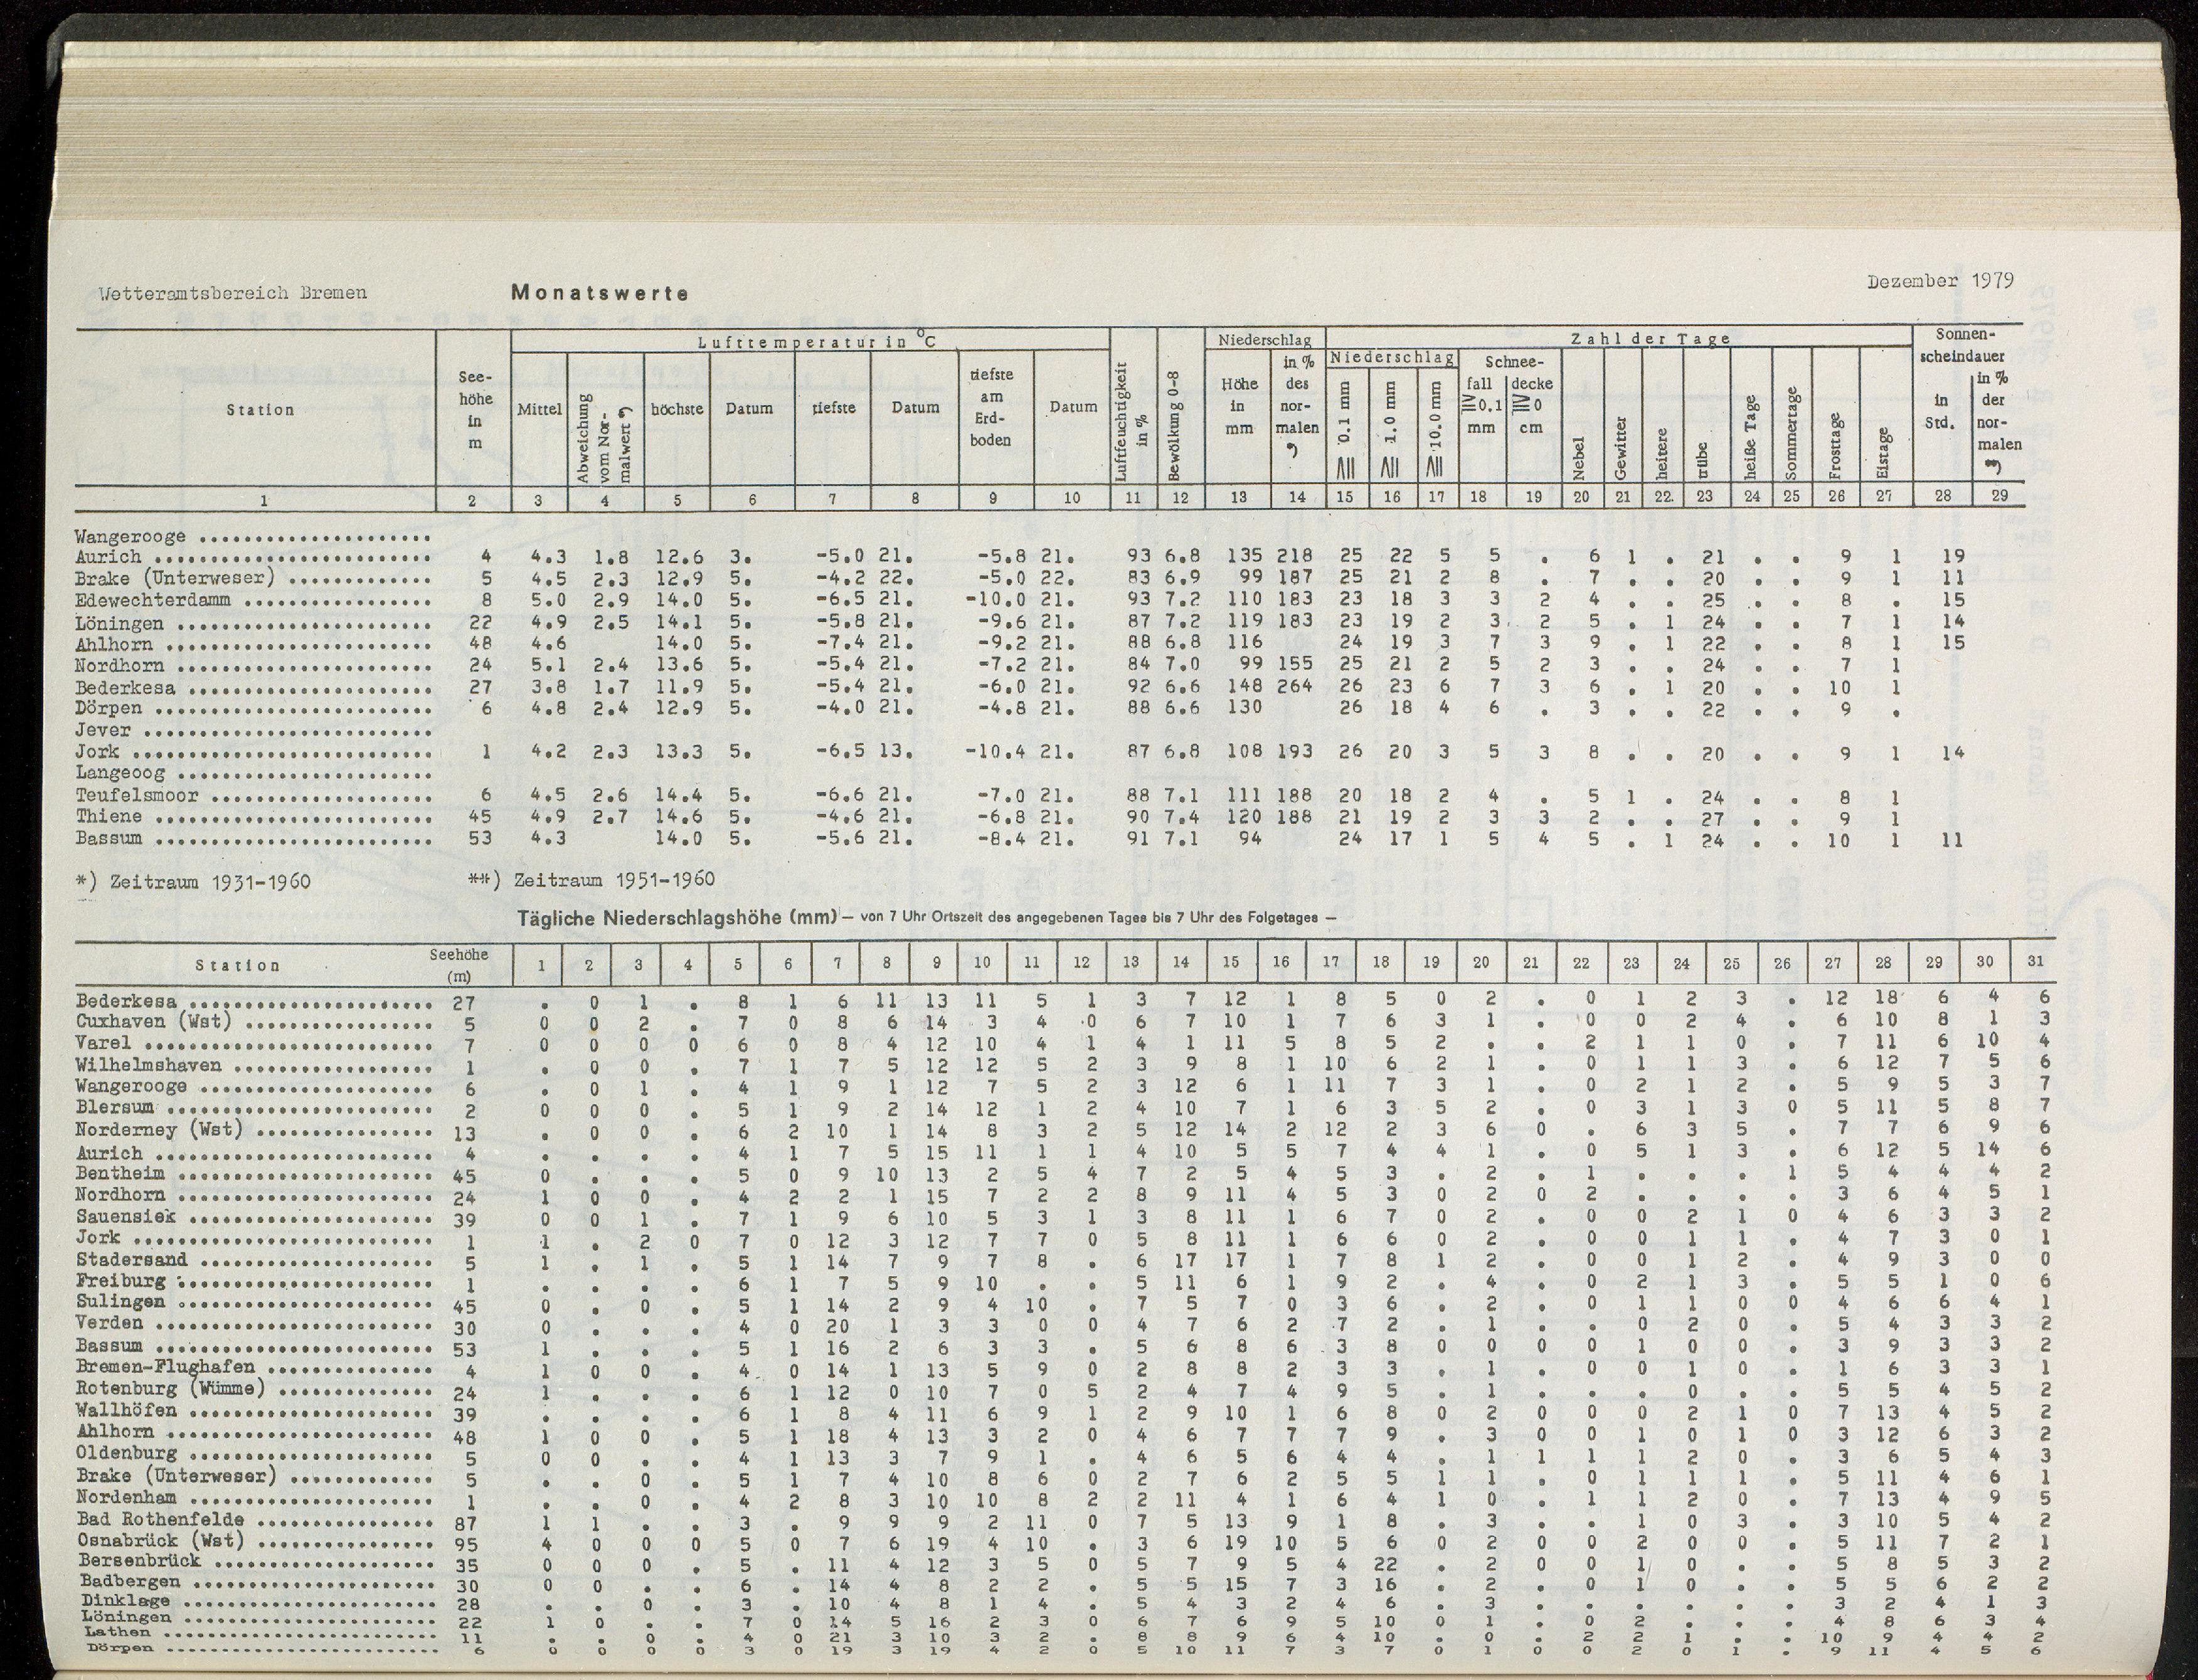 Wetteramtsbereich Bremen Monatswerte Dezember 1979
Station See-höhe in m Lufttemperatur in °C Luftfeuchtigkeit in % Bewölkung 0-8 Niederschlag Zahl der Tage Sonnen-scheindauer
Mittel Abweichung vom Nor-malwert *) höchste Datum tiefste Datum tiefste am Erd-boden Datum Höhe in mm in % des nor-malen *) Niederschlag ≧ 0.1 mm ≧ 1.0 mm ≧ 10.0 mm Schnee- fall ≧0.1 mm decke ≧0 cm Nebel Gewitter heitere trübe heiße Tage Sommertage Frosttage Eistage in Std. in % der nor-malen **)
1 2 3 4 5 6 7 8 9 10 11 12 13 14 15 16 17 18 19 20 21 22. 23 24 25 26 27 28 29
Wangerooge
Aurich 4 4.3 1.8 12.6 3. -5.0 21. -5.8 21. 93 6.8 135 218 25 22 5 5 . 6 1 . 21 . . 9 1 19
Brake (Unterweser) 5 4.5 2.3 12.9 5. -4.2 22. -5.0 22. 83 6.9 99 187 25 21 2 8 . 7 . . 20 . . 9 1 11
Edewechterdamm 8 5.0 2.9 14.0 5. -6.5 21. -10.0 21. 93 7.2 110 183 23 18 3 3 2 4 . . 25 . . 8 . 15
Löningen 22 4.9 2.5 14.1 5. -5.8 21. -9.6 21. 87 7.2 119 183 23 19 2 3 2 5 . 1 24 . . 7 1 14
Ahlhorn 48 4.6 14.0 5. -7.4 21. -9.2 21. 88 6.8 116 24 19 3 7 3 9 . 1 22 . . 8 1 15
Nordhorn 24 5.1 2.4 13.6 5. -5.4 21. -7.2 21. 84 7.0 99 155 25 21 2 5 2 3 . . 24 . . 7 1
Bederkesa 27 3.8 1.7 11.9 5. -5.4 21. -6.0 21. 92 6.6 148 264 26 23 6 7 3 6 . 1 20 . . 10 1
Dörpen 6 4.8 2.4 12.9 5. -4.0 21. -4.8 21. 88 6.6 130 26 18 4 6 . 3 . . 22 . . 9 .
Jever
Jork 1 4.2 2.3 13.3 5. -6.5 13. -10.4 21. 87 6.8 108 193 26 20 3 5 3 8 . . 20 . . 9 1 14
Langeoog
Teufelsmoor 6 4.5 2.6 14.4 5. -6.6 21. -7.0 21. 88 7.1 111 188 20 18 2 4 . 5 1 . 24 . . 8 1
Thiene 45 4.9 2.7 14.6 5. -4.6 21. -6.8 21. 90 7.4 120 188 21 19 2 3 3 2 . . 27 . . 9 1
Bassum 53 4.3 14.0 5. -5.6 21. -8.4 21. 91 7.1 94 24 17 1 5 4 5 . 1 24 . . 10 1 11
*) Zeitraum 1931-1960 **) Zeitraum 1951-1960
Tägliche Niederschlagshöhe (mm) — von 7 Uhr Ortszeit des angegebenen Tages bis 7 Uhr des Folgetages —
Station Seehöhe (m) 1 2 3 4 5 6 7 8 9 10 11 12 13 14 15 16 17 18 19 20 21 22 23 24 25 26 27 28 29 30 31
Bederkesa 27 . 0 1 . 8 1 6 11 13 11 5 1 3 7 12 1 8 5 0 2 . 0 1 2 3 . 12 18 6 4 6
Cuxhaven (Wst) 5 0 0 2 . 7 0 8 6 14 3 4 0 6 7 10 1 7 6 3 1 . 0 0 2 4 . 6 10 8 1 3
Varel 7 0 0 0 0 6 0 8 4 12 10 4 1 4 1 11 5 8 5 2 . . 2 1 1 0 . 7 11 6 10 4
Wilhelmshaven 1 . 0 0 . 7 1 7 5 12 12 5 2 3 9 8 1 10 6 2 1 . 0 1 1 3 . 6 12 7 5 6
Wangerooge 6 . 0 1 . 4 1 9 1 12 7 5 2 3 12 6 1 11 7 3 1 . 0 2 1 2 . 5 9 5 3 7
Blersum 2 0 0 0 . 5 1 9 2 14 12 1 2 4 10 7 1 6 3 5 2 . 0 3 1 3 0 5 11 5 8 7
Norderney (Wst) 13 . 0 0 . 6 2 10 1 14 8 3 2 5 12 14 2 12 2 3 6 0 . 6 3 5 . 7 7 6 9 6
Aurich 4 . . . . 4 1 7 5 15 11 1 1 4 10 5 5 7 4 4 1 . 0 5 1 3 . 6 12 5 14 6
Bentheim 45 0 . . . 5 0 9 10 13 2 5 4 7 2 5 4 5 3 . 2 . 1 . . . 1 5 4 4 4 2
Nordhorn 24 1 0 0 . 4 2 2 1 15 7 2 2 8 9 11 4 5 3 0 2 0 2 . . . . 3 6 4 5 1
Sauensiek 39 0 0 1 . 7 1 9 6 10 5 3 1 3 8 11 1 6 7 0 2 . 0 0 2 1 0 4 6 3 3 2
Jork 1 1 . 2 0 7 0 12 3 12 7 7 0 5 8 11 1 6 6 0 2 . 0 0 1 1 . 4 7 3 0 1
Stadersand 5 1 . 1 . 5 1 14 7 9 7 8 . 6 17 17 1 7 8 1 2 . 0 0 1 2 . 4 9 3 0 0
Freiburg 1 . . . . 6 1 7 5 9 10 . . 5 11 6 1 9 2 . 4 . 0 2 1 3 . 5 5 1 0 6
Sulingen 45 0 . 0 . 5 1 14 2 9 4 10 . 7 5 7 0 3 6 . 2 . 0 1 1 0 0 4 6 6 4 1
Verden 30 0 . . . 4 0 20 1 3 3 0 0 4 7 6 2 7 2 . 1 . . 0 2 0 . 5 4 3 3 2
Bassum 53 1 . . . 5 1 16 2 6 3 3 . 5 6 8 6 3 8 0 0 0 0 1 0 0 . 3 9 3 3 2
Bremen-Flughafen 4 1 0 0 . 4 0 14 1 13 5 9 0 2 8 8 2 3 3 . 1 . 0 0 1 0 . 1 6 3 3 1
Rotenburg (Wümme) 24 1 . . . 6 1 12 0 10 7 0 5 2 4 7 4 9 5 . 1 . . . 0 . . 5 5 4 5 2
Wallhöfen 39 . . . . 6 1 8 4 11 6 9 1 2 9 10 1 6 8 0 2 0 0 0 2 1 0 7 13 4 5 2
Ahlhorn 48 1 0 0 . 5 1 18 4 13 3 2 0 4 6 7 7 7 9 . 3 0 0 1 0 1 0 3 12 6 3 2
Oldenburg 5 0 0 . . 4 1 13 3 7 9 1 . 4 6 5 6 4 4 . 1 1 1 1 2 0 . 3 6 5 4 3
Brake (Unterweser) 5 . . 0 . 5 1 7 4 10 8 6 0 2 7 6 2 5 5 1 1 . 0 1 1 1 . 5 11 4 6 1
Nordenham 1 . . 0 . 4 2 8 3 10 10 8 2 2 11 4 1 6 4 1 0 . 1 1 2 0 . 7 13 4 9 5
Bad Rothenfelde 87 1 1 . . 3 . 9 9 9 2 11 0 7 5 13 9 1 8 . 3 . . 1 0 3 . 3 10 5 4 2
Osnabrück (Wst) 95 4 0 0 0 5 0 7 6 19 4 10 . 3 6 19 10 5 6 0 2 0 0 2 0 0 . 5 11 7 2 1
Bersenbrück 35 0 0 0 . 5 . 11 4 12 3 5 0 5 7 9 5 4 22 . 2 0 0 1 0 . . 5 8 5 3 2
Badbergen 30 0 0 . . 6 . 14 4 8 2 2 . 5 5 15 7 3 16 . 2 . 0 1 0 . . 5 5 6 2 2
Dinklage 28 . . 0 . 3 . 10 4 8 1 4 . 5 4 3 2 4 6 . 3 . . . . . . 3 2 4 1 3
Löningen 22 1 0 . . 7 0 14 5 16 2 3 0 6 7 6 9 5 10 0 1 . 0 2 . . . 4 8 6 3 4
Lathen 11 . . 0 . 4 0 21 3 10 3 2 . 8 8 9 6 4 10 . 0 . 2 2 1 . . 10 9 4 4 2
Dörpen 6 0 0 0 0 3 0 19 3 19 4 2 0 5 10 11 7 3 7 0 1 0 0 2 0 1 . 9 11 4 5 6